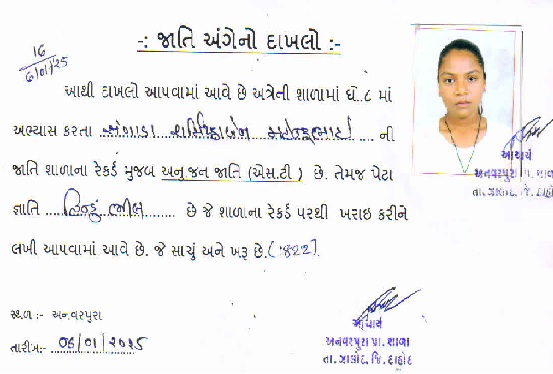 -: જાતિ અંગેનો દાખલો :-
16
6/01/25
આથી દાખલો આપવામાં આવે છે અત્રેની શાળામાં ધો..૮ માં
અભ્યાસ કરતા ની
જાતિ શાળાના રેકર્ડ મુજબ અનુ.જન જાતિ (એસ.ટી ) છે. તેમજ પેટા
જ્ઞાતિ હિન્દુ ભીલ છે જે શાળાના રેકર્ડ પરથી ખરાઇ કરીને
લખી આપવામાં આવે છે. જે સાચું અને ખરૂ છે.
આચાર્ય
અનવરપુરા પ્રા. શાળા
તા. ઝાલોદ, જિ. દાહોદ
સ્થળ :- અનવરપુરા
તારીખ:- 06/01/૨૦
આચાર્ય
અનવરપુરા પ્રા. શાળા
તા. ઝાલોદ, જિ. દાહોદ